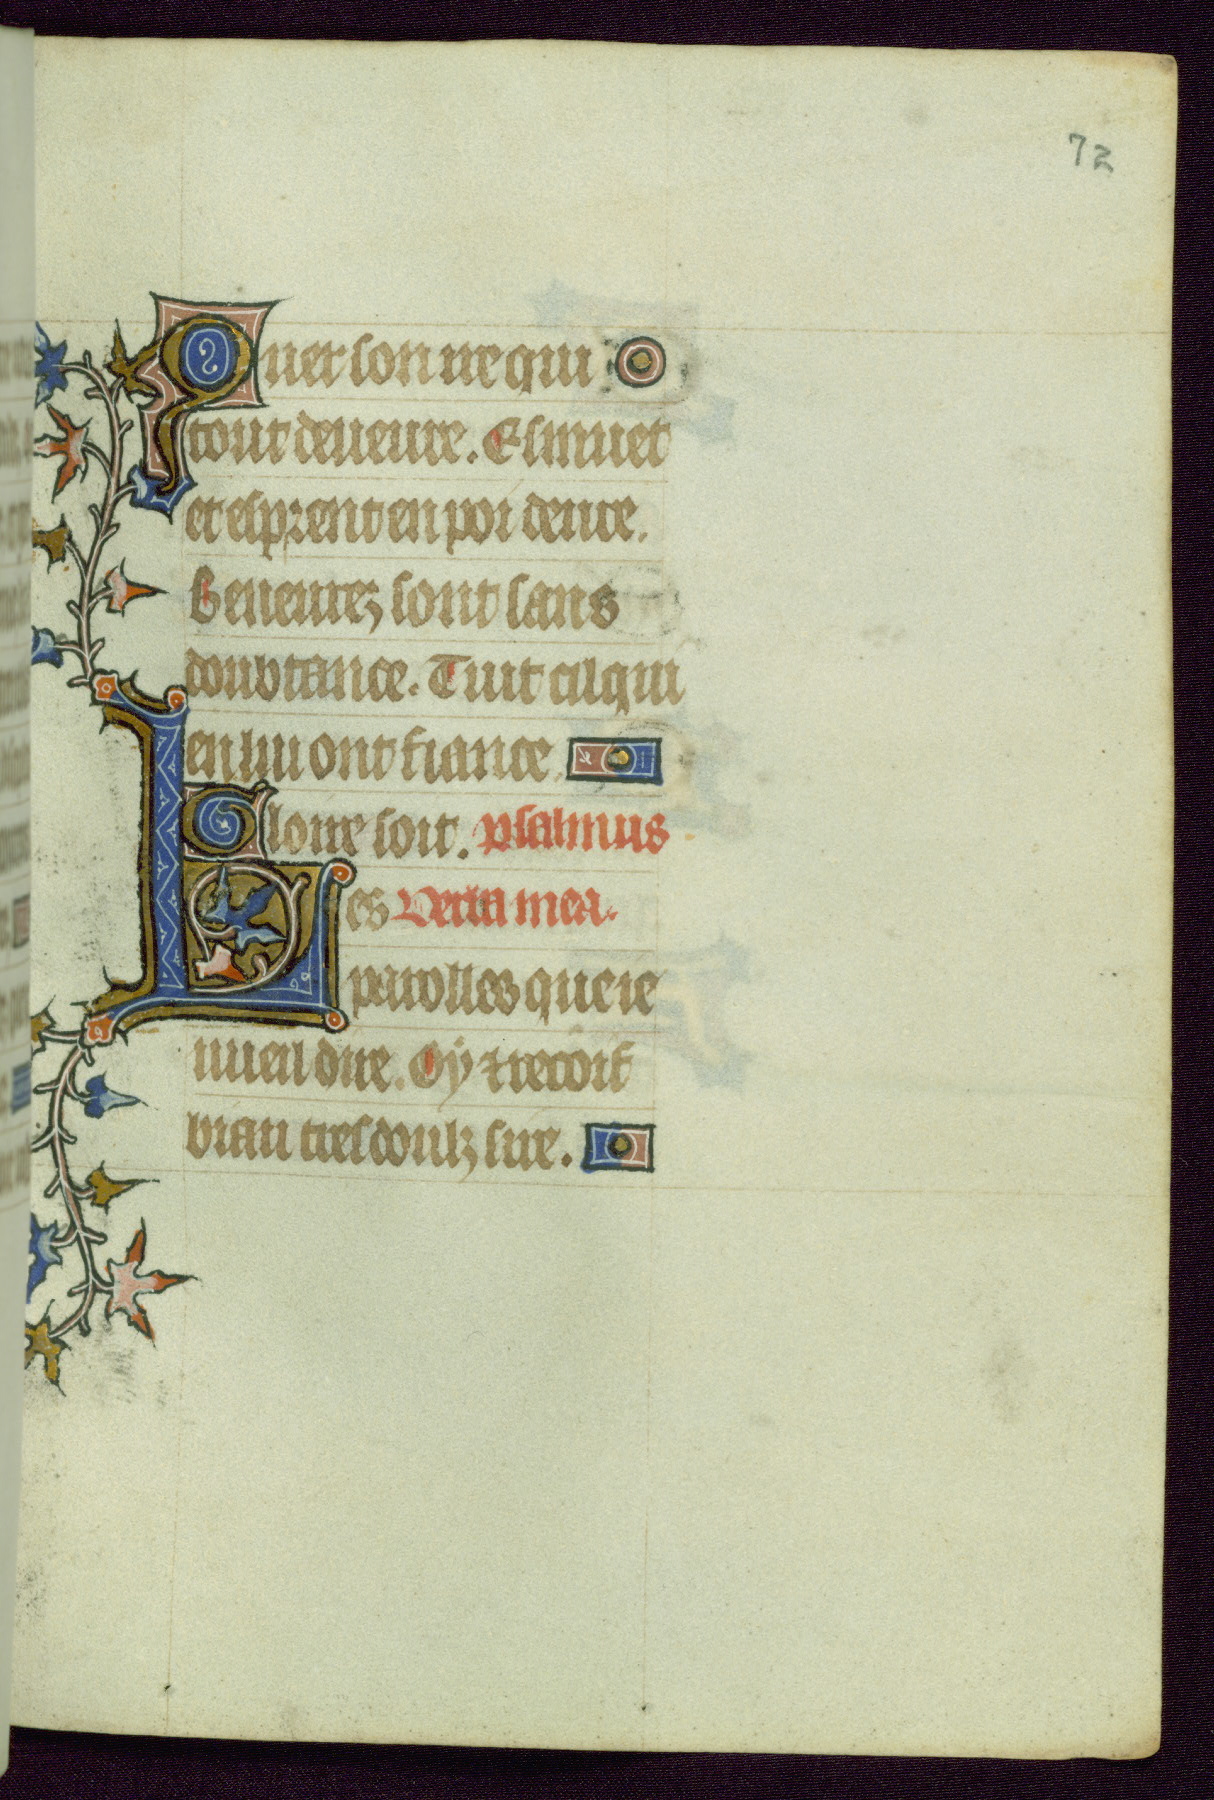 72
Quer son ire qui
tout deueure. Esmuet
et esprent en poi deure.
Beneurez sont sans
doubtance. Tuit cil qui
en lui ont fiance.
Gloire soit. psalmus
Les Verba mea.
parolles que ie
vueil dire. Oy ⁊ recoif
biau tres doulz sire.